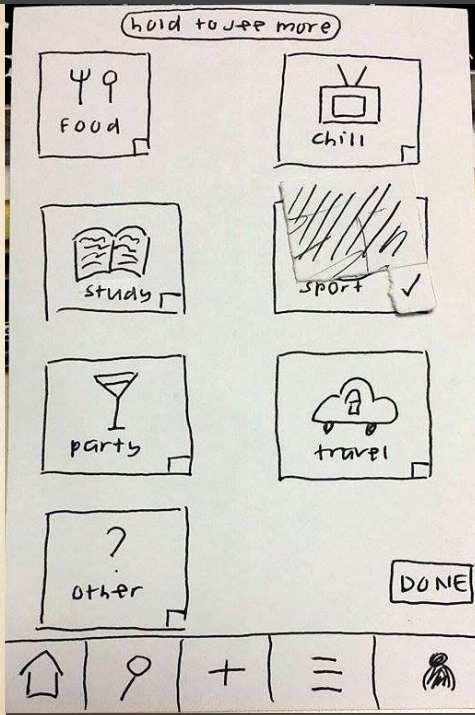 hold to see more
food
chill
study
sport
party
travel
?
other
DONE